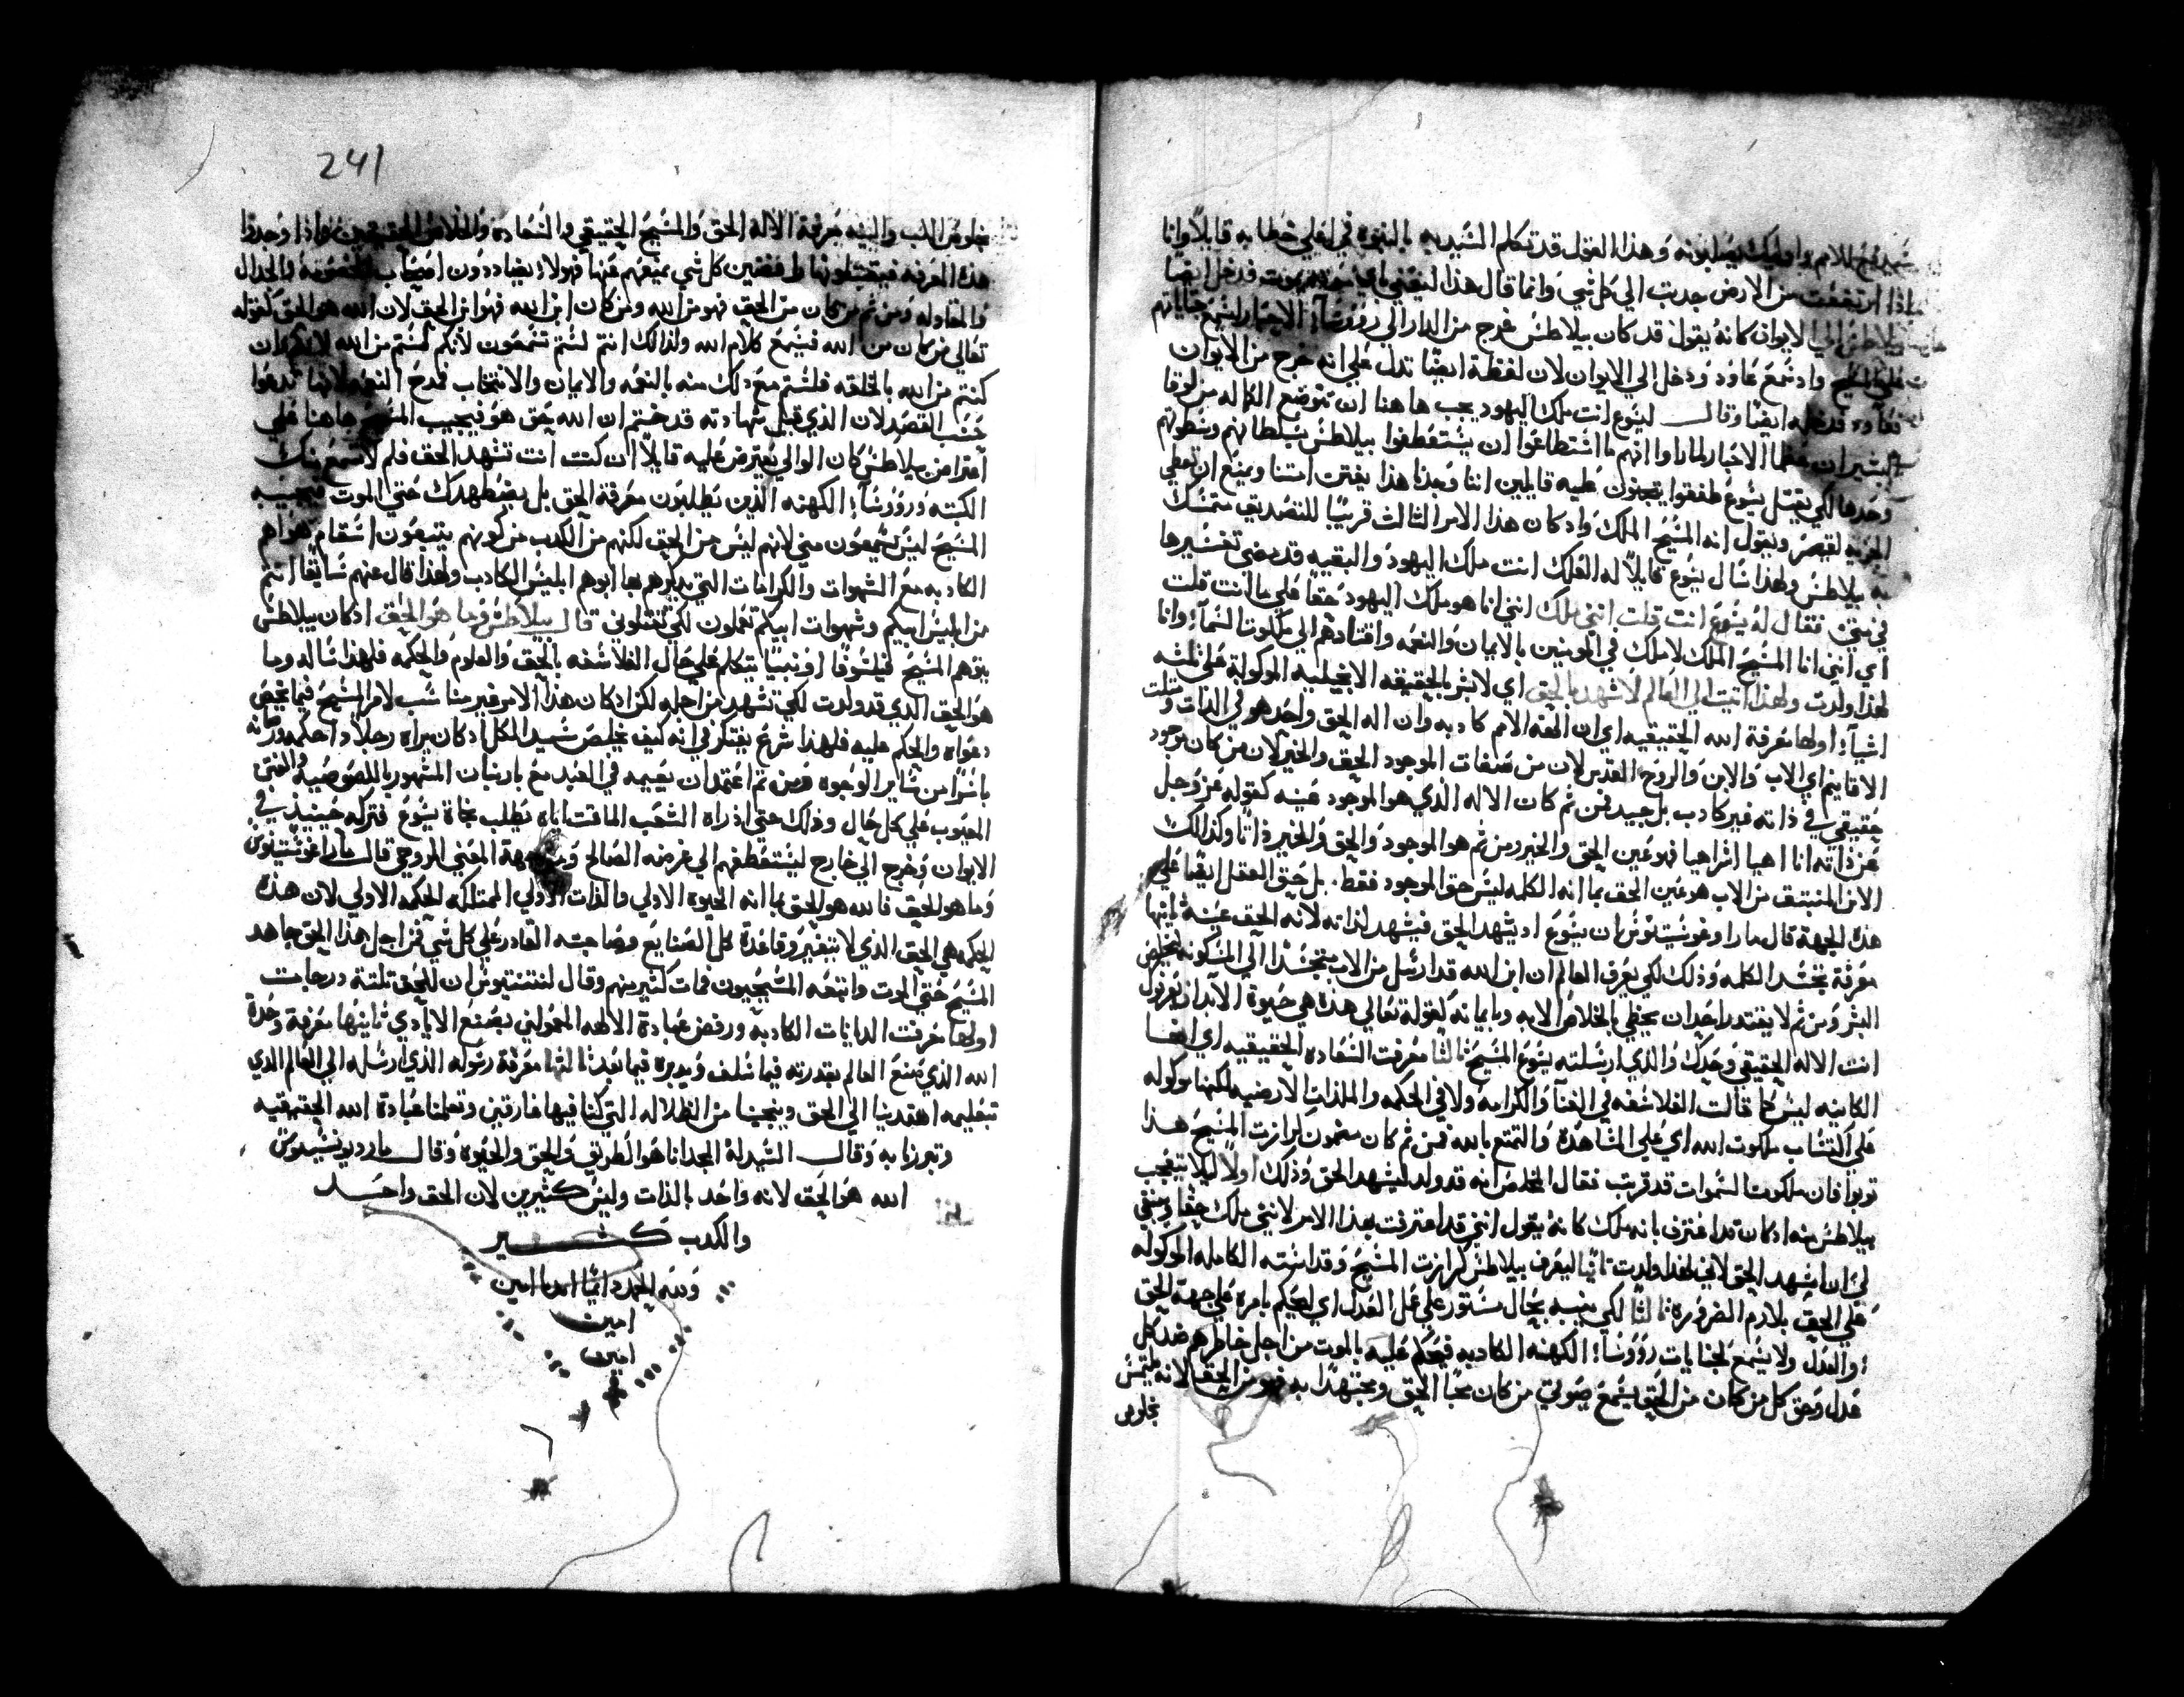 للامم واوليك يصلبونه وهذا القول قد تكلم السيد به بالنبوه في اعلي خطابه قايلاً وانا
اذا ارتفعت من الارض جدبت الي كل شي وانما قال هذا ليعني باي يموت فدخل ايضا
بيلاطس الي الايوان كانه يقول قد كان بيلاطس خرج من الدار الي روسا الاحبار ليسمع
علي المسيح واد سمع عاود ودخل الي الايوان لان لفظة ايضاً تدل علي انه خرج من الايوان
ايضاً وقال ليسوع انت ملك اليهود يجب هاهنا ان نتوضع الكاله من لوقا
البشير ان عظما الاحبار لما راوا انهم ما استطاعوا ان يستعطفوا بيلاطس بسلطانهم وسطوتهم
وحدها لكي يقتل يسوع طفقوا يقرفون عليه قايلين اننا وجدنا هذا يفتن امتنا ويمنع ان تعطي
الجزيه لقيصر ويقول انه المسيح الملك واد كان هذا الامر الثالث قريباً للتصديق متمسك
به بيلاطس ولهذا سال يسوع قايلاً له العلك انت ملك اليهود والبقيه قد مضي تفسيرها
في متي فقال له يسوع انت قلت انني ملك انني انا هو ملك اليهود حقاً علي ما انت قلت
اي انني انا المسيح الملك لاملك في المومنين بالايمان والنعمه واقتادهم الي ملكوت السما وانا
لهذا ولدت ولهذا اتيت الي العالم لاشهد بالحق اي لابشر بالحقيقه الانجيليه الموكوله علي تلته
اشيا اولها معرفة الله الحقيقيه اي ان الهة الامم كادبه وان اله الحق واحد هو في الدات ومتلت
الاقانيم اي الاب والابن والروح القدس لان من صفات الموجود الحق والخير لان من كان موجود
حقيقي في ذاته غير كادب بل جيد فمن ثم كان الاله الذي هو الموجود عينه كقوله عز وجل
عن ذاته انا اهيا اشراهيا فهو عين الحق والخير ومن ثم هو الموجود والحق والخير ذاتاً وكذالك
الابن المنبتق من الاب هو عين الحق بما انه الكلمه ليس حق الموجود فقط. بل حق العقل ايضا علي
هذه الجهة قال مار اوغوستينوس ان يسوع اد يشهد الحق فيشهد لذاته لانه الحق عينه ثانيها
معرفة تجسد الكلمه وذلك لكي يعرف العالم ان ابن الله قد ارسل من الاب متجسداً الي المسكونه لخلاص
البشر ومن ثم لا يقتدر احد ان يحظي بالخلاص الا به وبايمانه كقوله تعالي هذه هي حيوة الابد ان يعرفوك
انت الاله الحقيقي وحدك والذي ارسلته يسوع المسيح ثالثاً معرفت السعاده الحقيقيه اي انها
الكاينه ليس كما قالت الفلاسفه في الغنا والكرامه ولا في الحكمه والملذات الارضيه لكنها موكوله
علي اكتساب ملكوت الله اي علي المشاهدة والتمتع بالله فمن ثم كان مضمون كرازت المسيح هذا
توبوا فان ملكوت السموات قد قربت فقال المخلص انه قد ولد ليشهد الحق وذلك اولا ليلا يتعجب
بيلاطس منه ادكان قد اعترف بانه ملك كانه يقول انني قد اعترفت بهذا الامر لانني ملك حقاً وينبغي
لي ان اشهد الحق لاني لهذا ولدت ثانياً ليعرف بيلاطس كرازت المسيح وقداسته الكامله الموكوله
علي الحق بلازم الضروره ثالثاً لكي ينبه بحال مستور علي عمل العدل اي ليحكم بامره علي جهة الحق
والعدل ولا يسمع لجنايات رووسا الكهنه الكادبه فيحكم عليه بالموت من اجل خاطرهم ضد كل
عدل وحق كل من كان من الحق يسمع صوتي من كان محباً الحق ومجتهداً به فهو من الحق لانه يلتمس
بخلوص
241
بخلوص القلب والنيه معرفة الاله الحق والمسيح الحقيقي والسعادة والخلاص الحقيقيين واذا وجدوا
هذه المعرفه فيقبلونها رافضين كل شي يمنعهم عنها فهولاء يضاددون اصحاب الخصومة والجدال
والمقاوله ومن ثم من كان من الحق فهو من الله ومن كان ابن الله فهو ابن الحق لان الله هو الحق كقوله
تعالي من كان من الله فيسمع كلام الله ولذالك انتم لستم تسمعون لانكم لستم من الله لانكم وان
كنتم من الله بالخلقه فلستم مع ذلك منه بالنعمه والايمان والانتخاب فمدح النعمه لانها تدعوا
حسب القصد لان الذي قبل شهادته قد ختم ان الله حق هو فيجيب المسيح هاهنا علي
اعتراض بيلاطس كان الوالي يعترض عليه قايلاً ان كنت انت تشهد الحق فلم لا يسمع منك
الكتبه ورووسا الكهنه الذين يطلبون معرفة الحق بل يضطهدك حتي الموت فيجيب
المسيح ليس يسمعون مني لانهم ليس من الحق لكنهم من الكدب من كونهم يتبعون اسقام هواهم
الكادبه مع الشهوات والكرامات التي يدكرهم بها ابوهم ابليس الكادب ولهذا قال عنهم سابقاً انتم
من ابليس ابيكم وشهوات ابيكم تعملون لكي تقتلوني قال بيلاطس وما هو الحق ادكان بيلاطس
يتوهم المسيح فيلسوفاً او نبياً يتكلم علي حال الفلاسفه بالحق والعلوم والحكمه فلهذا ساله وما
هو الحق الذي قد ولدت لكي تشهد من اجله لكن ادكان هذا الامر غير مناسب لامر المسيح فيما يخص
دعواه والحكم عليه فلهذا شرع يفتكر في انه كيف يخلص سيد الكل ادكان يراه رجلاً دا حكمه ورزانه
باسراً من ساير الوجوه ومن ثم اعتمد ان يقيمه في العيد مع بارنبان المشهور باللصوصيه والفتن
المعيوب علي كل حال وذلك حتي اذراه الشعب الماقت اياه يطلب نجاة يسوع فتركه حينيذ في
الايوان وخرج الي خارج ليستعطفهم الي غرضه الصالح جهة المعني الروحي قال مار اغوستينوس
وما هو الحق فالله هو الحق بما انه الحيوه الاولي والذات الاولي الممتلكه الحكمه الاولي لان هذه
الحكمه هي الحق الذي لا يتغير وقاعدة كل الصنايع وصاحبته القادر علي كل شي فمن اجل هذا الحق جاهد
المسيح حتي الموت واتبعه المسيحيون فمات كثير منهم وقال لنتنتيوس ان للحق تلتة درجات
اولها معرفت الديانات الكادبه ورفض عبادة الالهه المعمولين بصنع الايادي ثانيها معرفة وحدة
الله الذي صنع العالم بقدرته فيما سلف ويدبره فيما بعد ثالثها معرفة رسوله الذي ارسله الي العالم الذي
بتعليمه اهتدينا الي الحق وينجينا من الظلاله التي كنا فيها غارقين وتعلمنا عبادة الله الحقيقيه
وتبررنا به وقال السيد له المجد انا هو الطريق والحق والحيوه وقال مار ديونسيوس
الله هو الحق لانه واحد بالذات وليس كثيرين لان الحق واحد
والكدب كثير
ولله الحمد دايماً ابدا امين
امين
امين